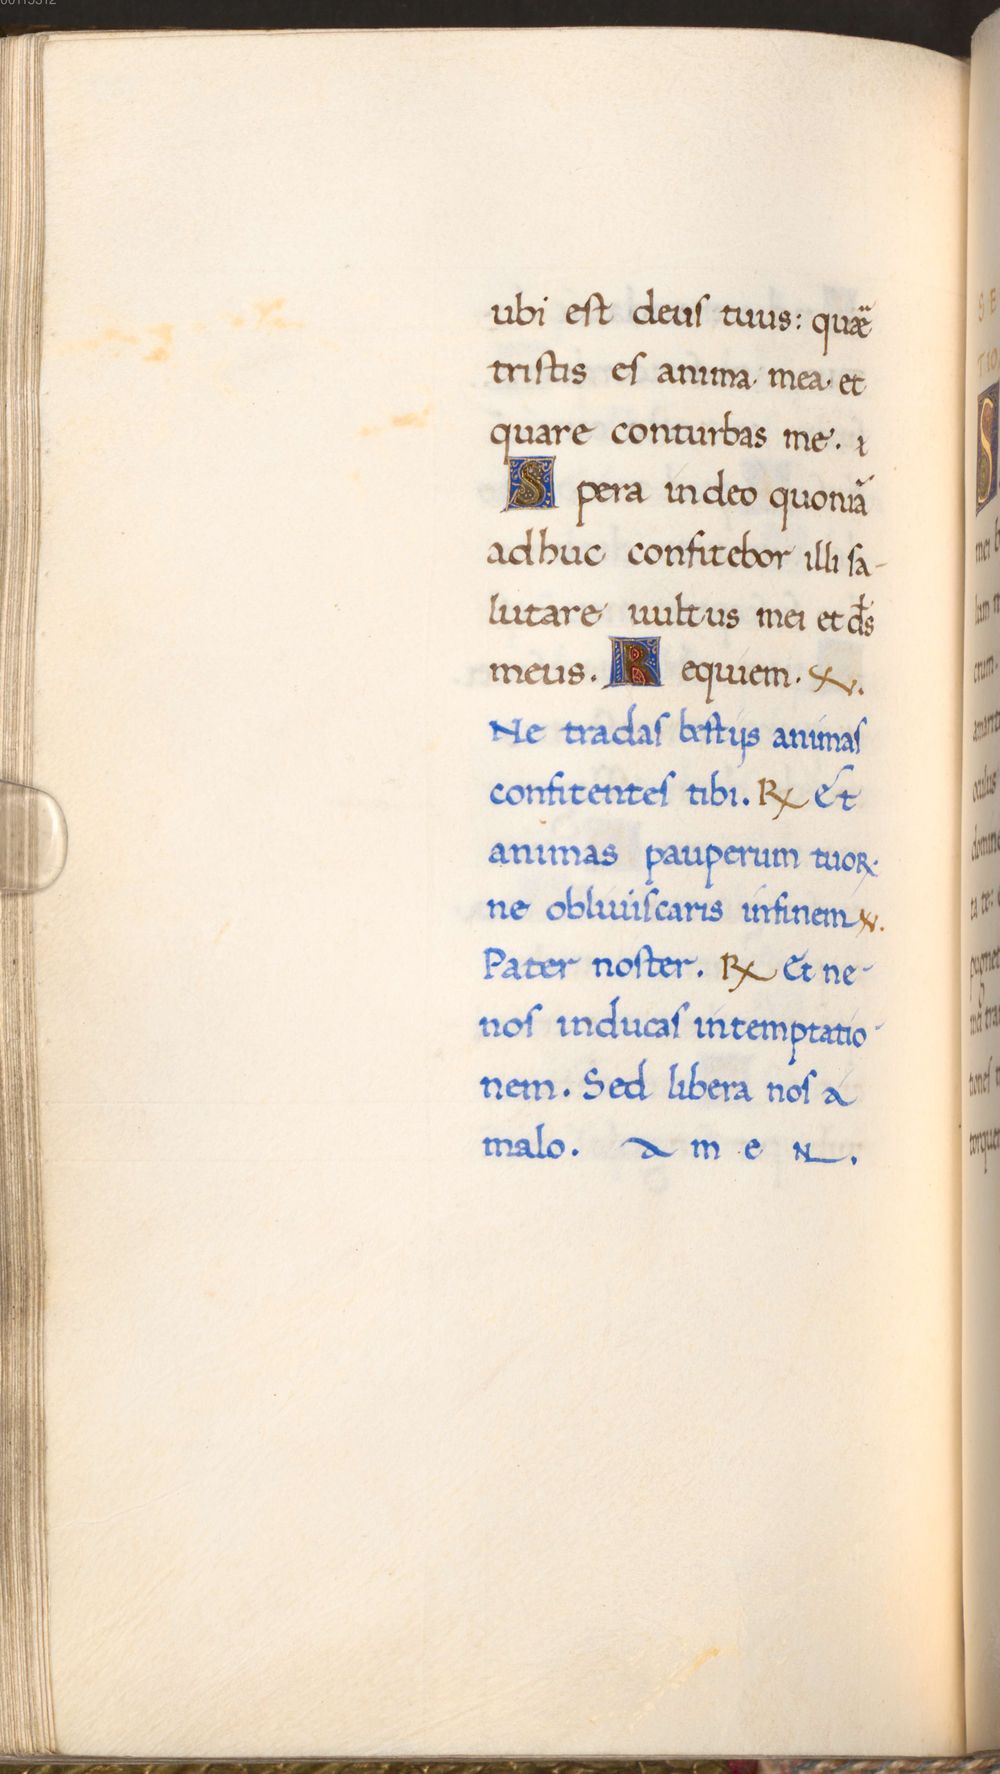 ubi est deus tuus: quaͣe
tristis es anima mea et
quare conturbas me. ⁊
Spera in deo quoniã
adhuc confitebor illi sa-
lutare uultus mei et ds̄
meus. Requiem. ℣.
Ne tradas bestijs animas
confitentes tibi. ℟ Et
animas pauperum tuoꝝ
ne obliuiscaris infinem ℣.
Pater noster. ℟ Et ne-
nos inducas intemptatio-
nem. Sed libera nos a
malo. A m e N.